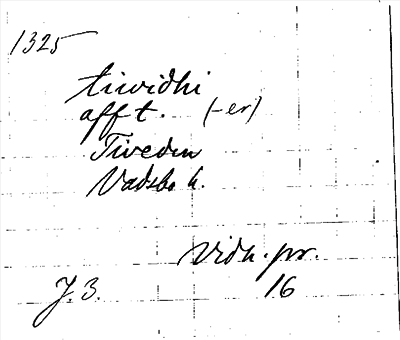 1325
tiwidhi
aff t. (-er)
Tiveden
Vadsbo h.
Vidh. pr.
J. 3. 16